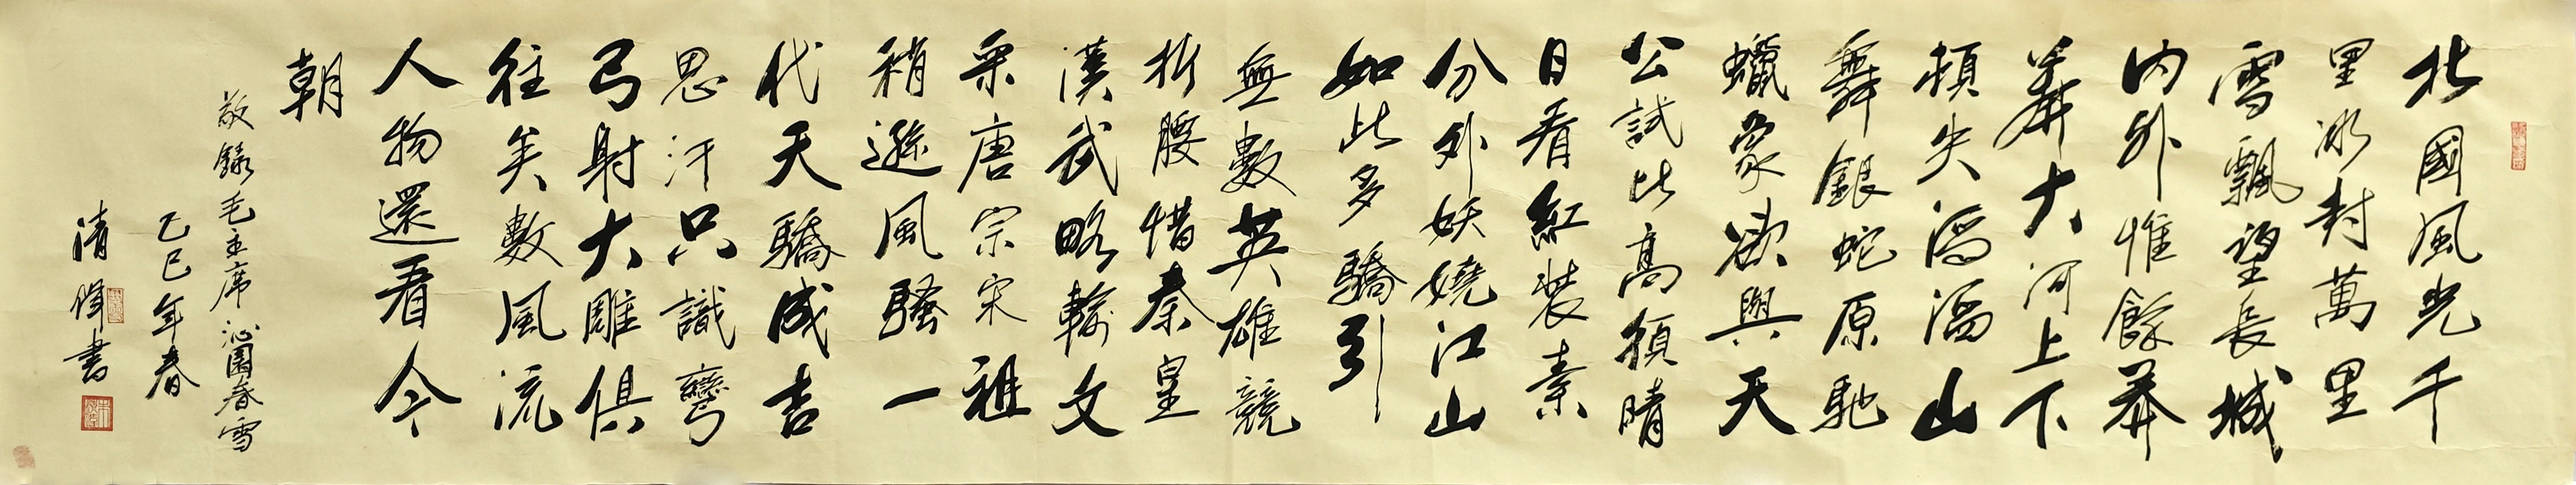 北國風光千
里冰封萬里
雪飄望長城
内外惟餘莽
莽大河上下
頓失滔滔山
舞銀蛇原馳
蠟象欲與天
公試比高須晴
日看紅裝素
分外妖嬈江山
如此多驕引
無數英雄競
折腰惜秦皇
漢武略輸文
采唐宗宋祖
稍遜風騷一
代天驕成吉
思汗只識彎
弓射大雕俱
往矣數風流
人物還看今
朝
敬録毛主席沁園春雪
乙巳年春
清書